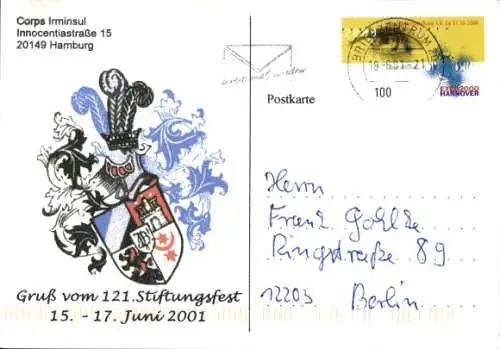 Corps Irminsul
Innocentiastraße 15
20149 Hamburg
100
EXPO2000
HANNOVER
Postkarte
Herrn
Franz Gohlke
Ringstraße 89
12203 Berlin
Gruß vom 121.Stiftungsfest
15. - 17. Juni 2001